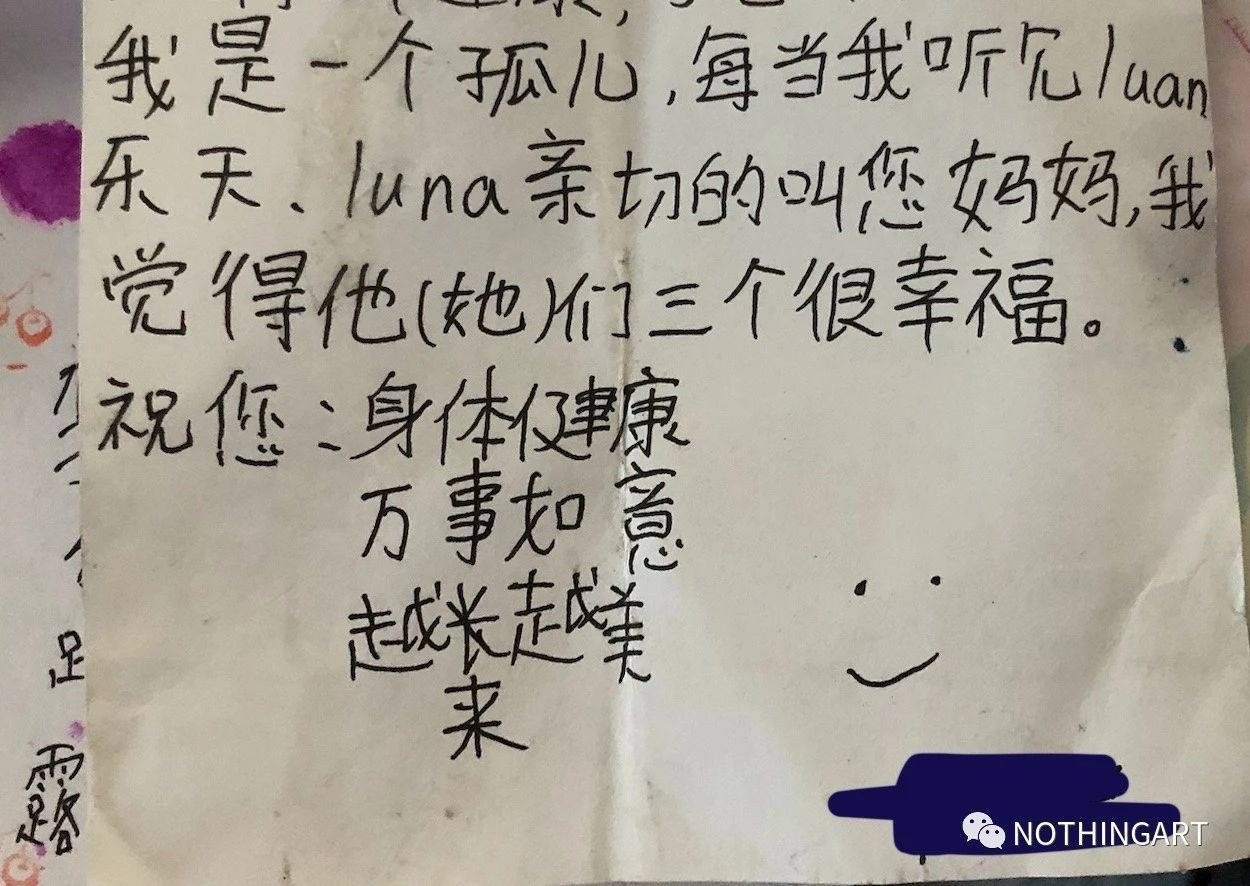 我是一个孤儿,每当我听见luan
乐天、luna亲切的叫您妈妈,我
觉得他(她)们三个很幸福。
祝您:身体健康
万事如意
越长越美
来
足
露
NOTHINGART